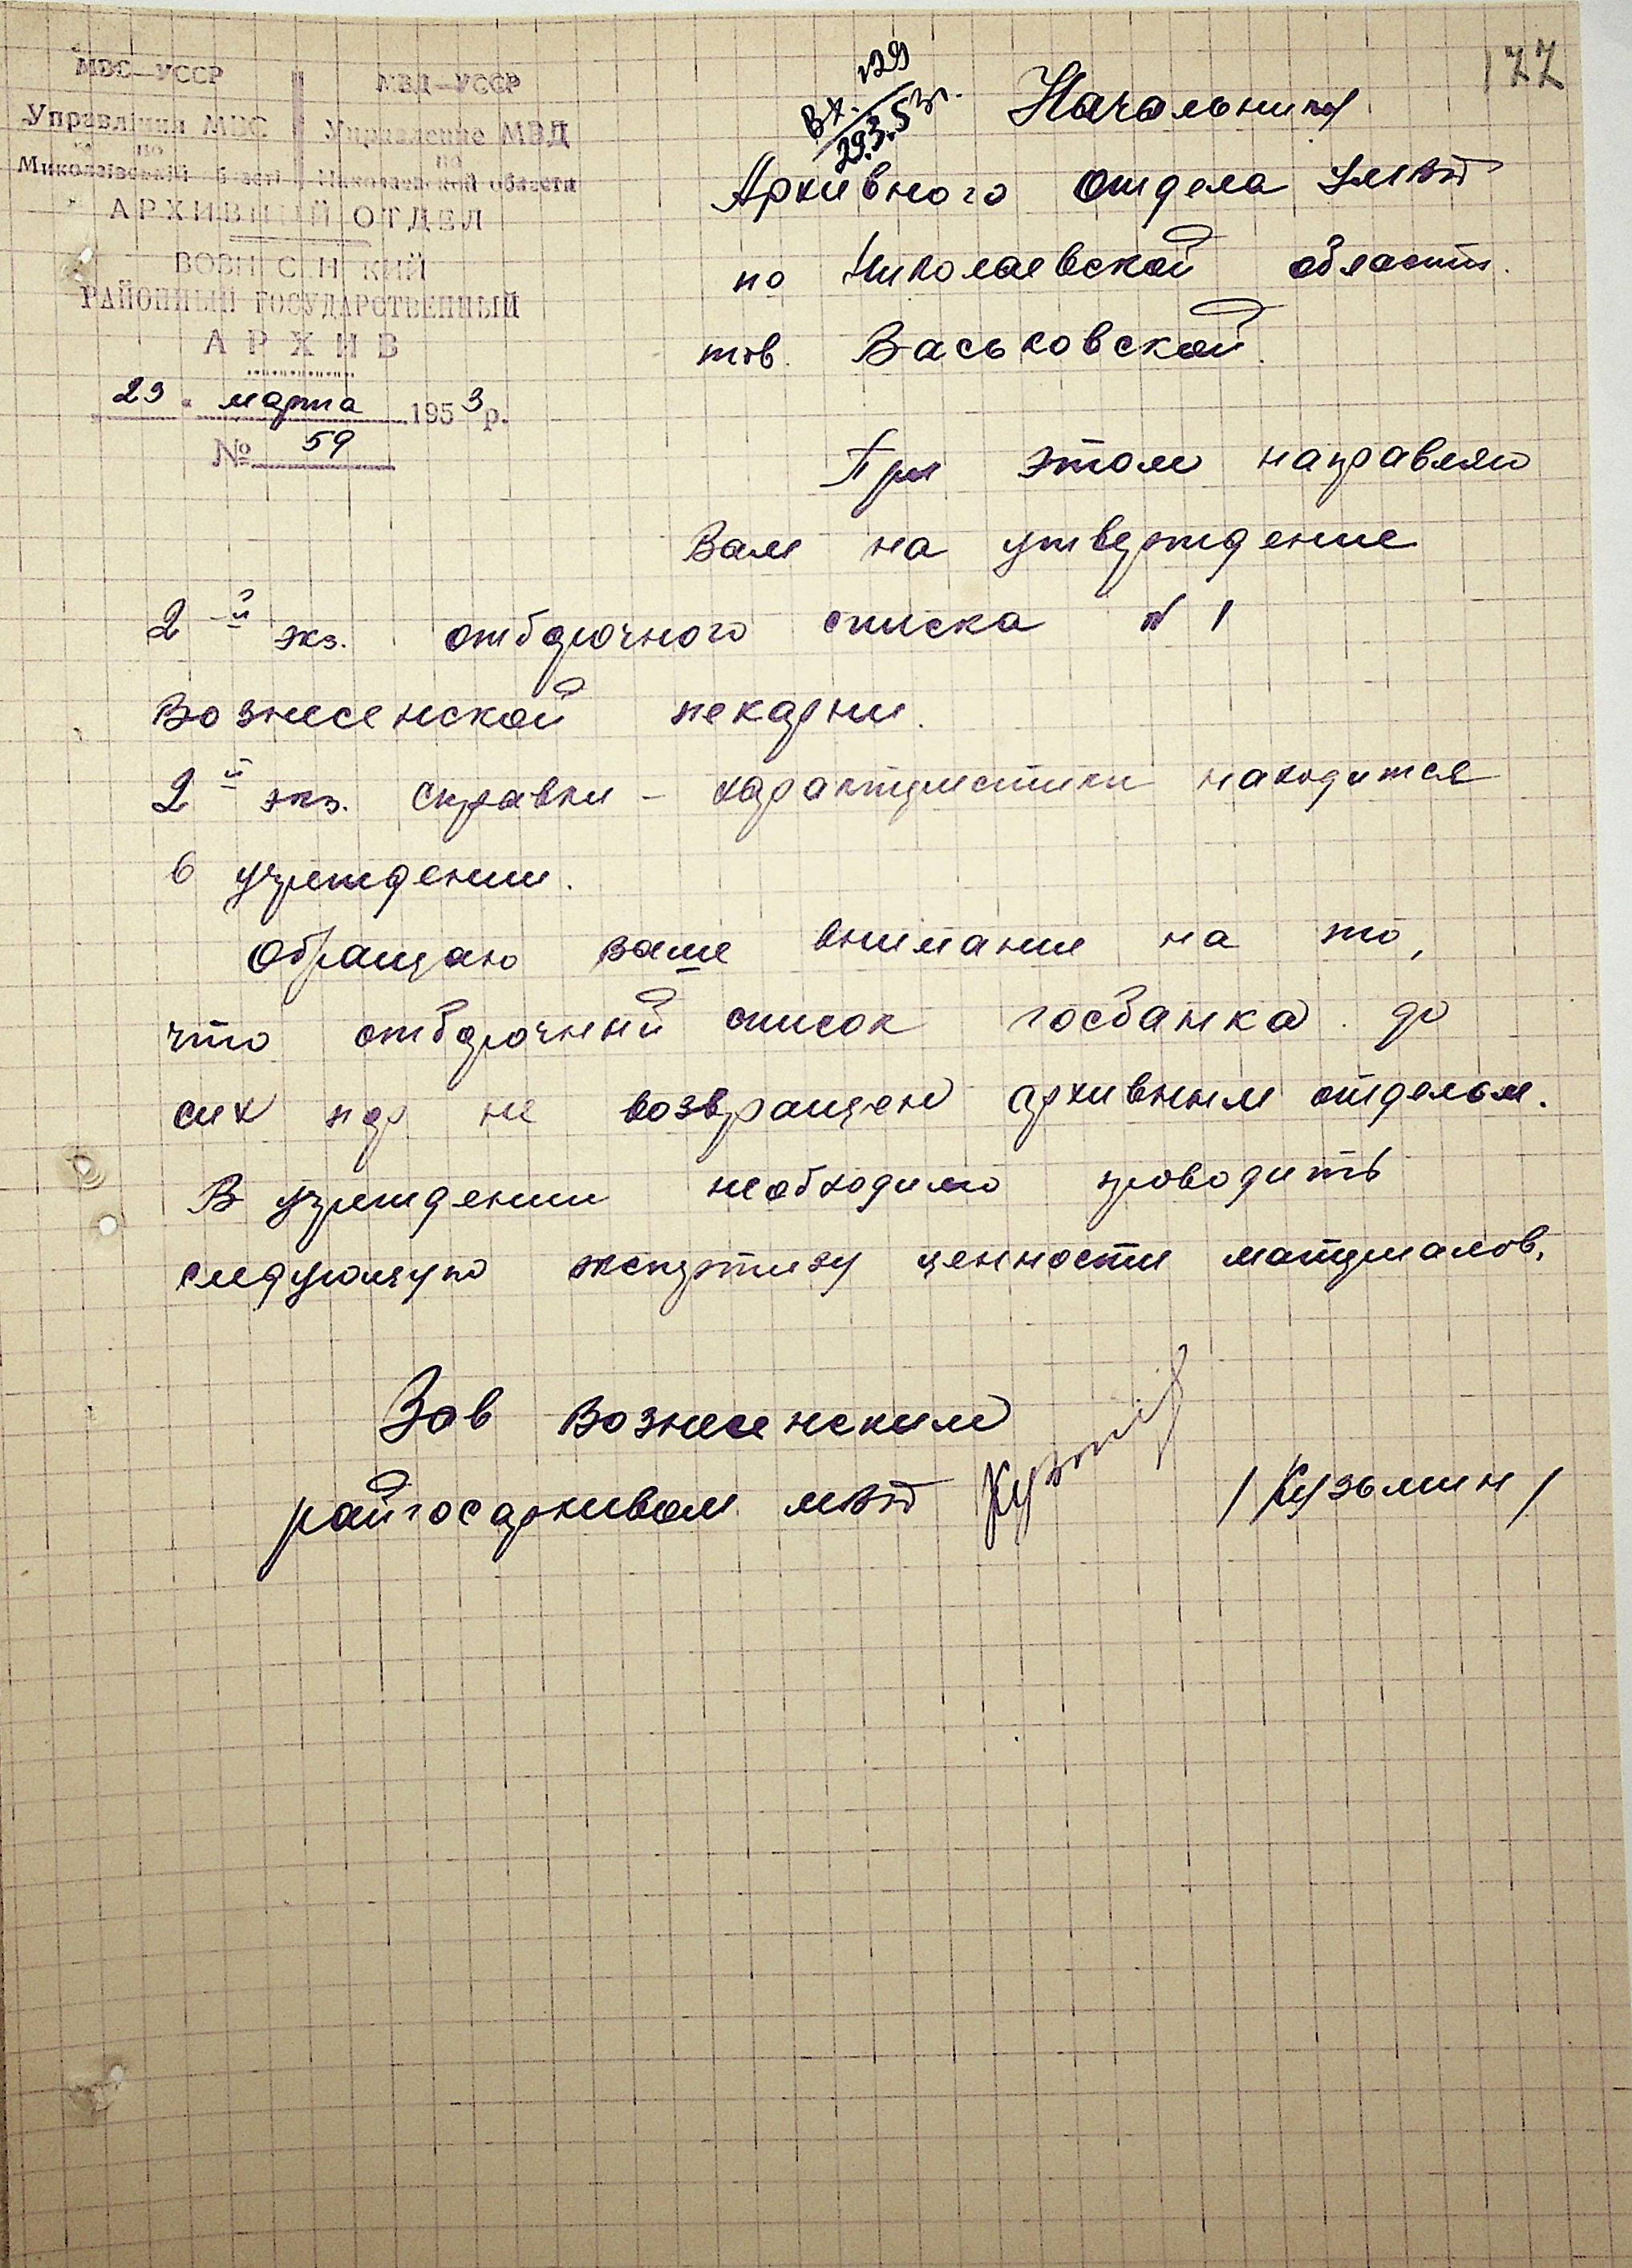 177
МВС—УССР
Управління МВС
по
Миколаївській області
МВД—УССР
Управление МВД
по
Николаевской области
АРХИВНЫЙ ОТДЕЛ
ВОЗНЕСЕНСКИЙ
РАЙОННЫЙ ГОСУДАРСТВЕННЫЙ
АРХИВ
23 " марта 1953 р.
№ 59
Вх. 129
29.3.53г.
Начальнику
Архивного отдела УМВД
по Николаевской области.
тов. Васьковской.
При этом направляю
Вам на утверждение
2-й экз. отборочного списка № 1
Вознесенской пекарни.
2й экз. справки - характеристики находится
в учреждении.
Обращаю ваше внимание на то,
что отборочный список госбанка до
сих пор не возвращен архивным отделом.
В учреждении необходимо проводить
следующую экспертизу ценности материалов.
Зав Вознесенским
райгосархивом МВД
/Кузьмин/